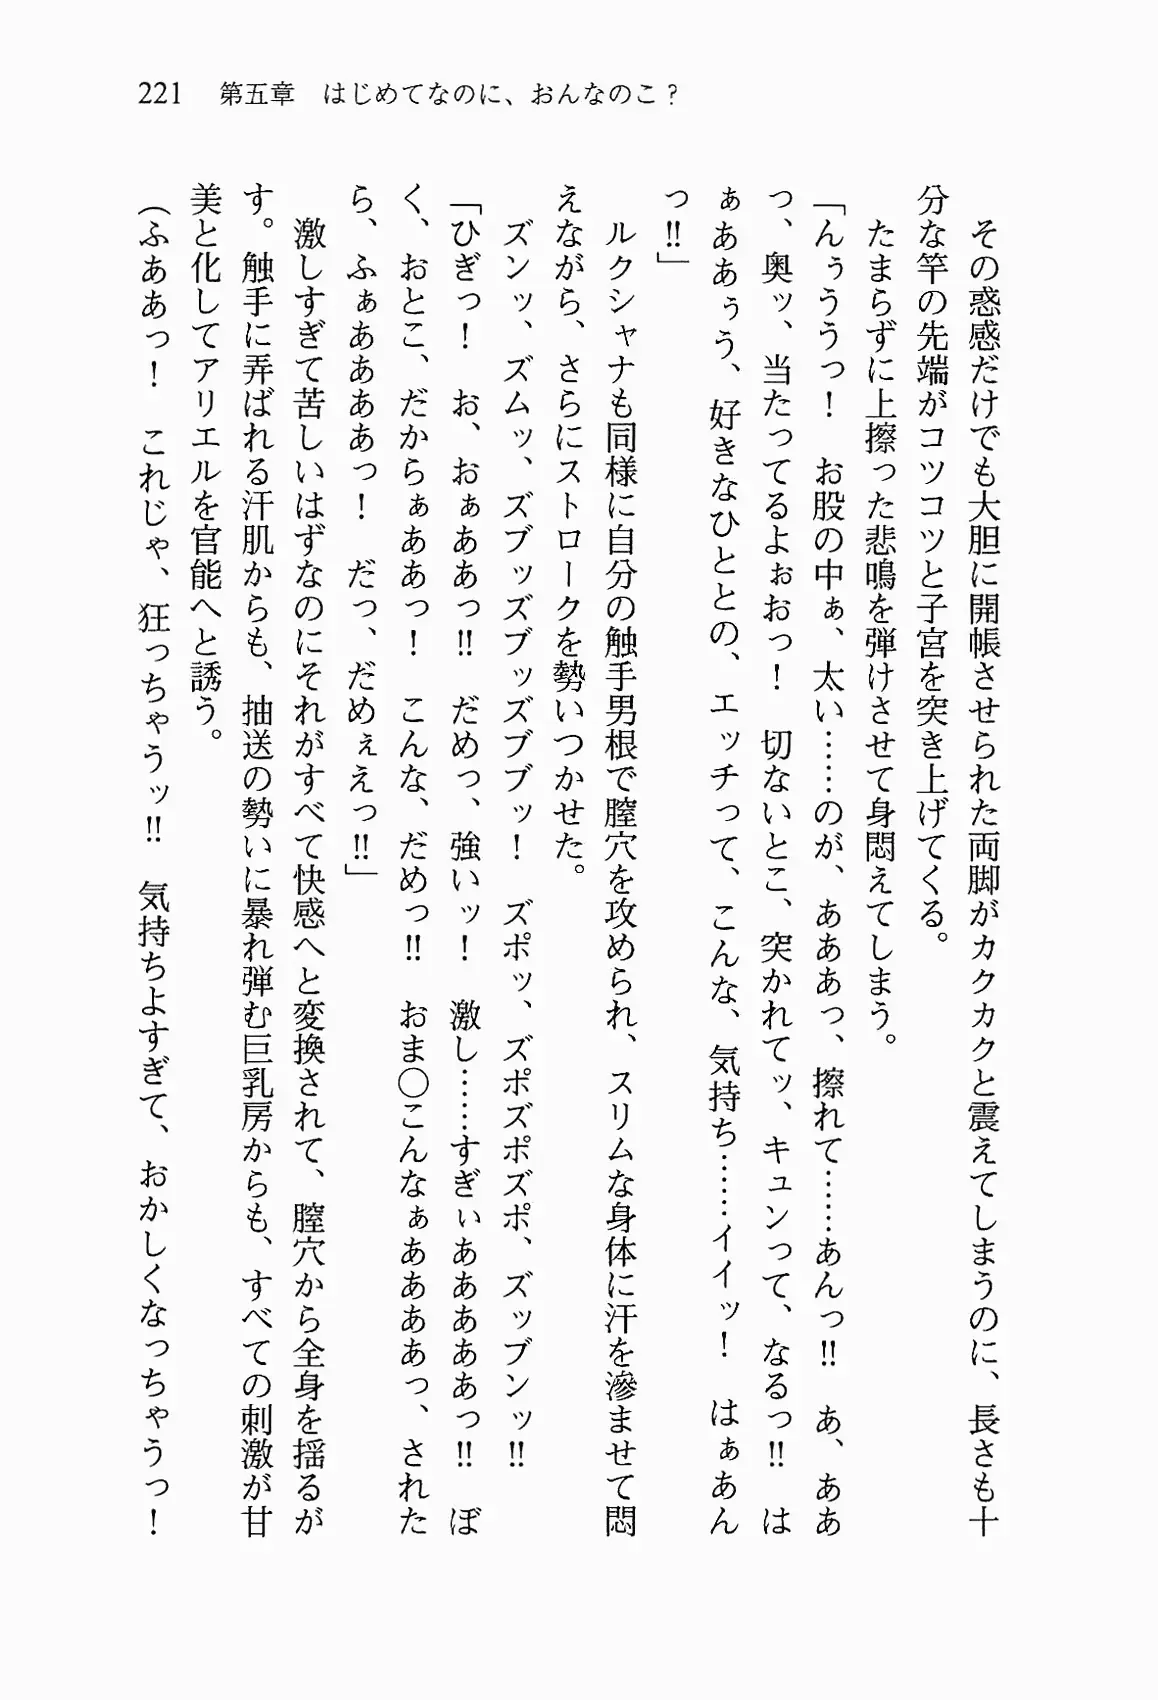 221　第五章　はじめてなのに、おんなのこ？
　その惑感だけでも大胆に開帳させられた両脚がカクカクと震えてしまうのに、長さも十
分な竿の先端がコツコツと子宮を突き上げてくる。
　たまらずに上擦った悲鳴を弾けさせて身悶えてしまう。
「んぅううっ！　お股の中ぁ、太い……のが、あああっ、擦れて……あんっ‼　あ、ああ
っ、奥ッ、当たってるよぉおっ！　切ないとこ、突かれてッ、キュンって、なるっ‼　は
ぁああぅう、好きなひととの、エッチって、こんな、気持ち……イイッ！　はぁあん
っ‼」
　ルクシャナも同様に自分の触手男根で膣穴を攻められ、スリムな身体に汗を滲ませて悶
えながら、さらにストロークを勢いつかせた。
　ズンッ、ズムッ、ズブッズブッズブブッ！　ズポッ、ズポズポズポ、ズッブンッ‼
「ひぎっ！　お、おぁああっ‼　だめっ、強いッ！　激し……すぎぃあああああっ‼　ぼ
く、おとこ、だからぁああっ！　こんな、だめっ‼　おま〇こんなぁああああっ、された
ら、ふぁああああっ！　だっ、だめぇえっ‼」
　激しすぎて苦しいはずなのにそれがすべて快感へと変換されて、膣穴から全身を揺るが
す。触手に弄ばれる汗肌からも、抽送の勢いに暴れ弾む巨乳房からも、すべての刺激が甘
美と化してアリエルを官能へと誘う。
（ふああっ！　これじゃ、狂っちゃうッ‼　気持ちよすぎて、おかしくなっちゃうっ！